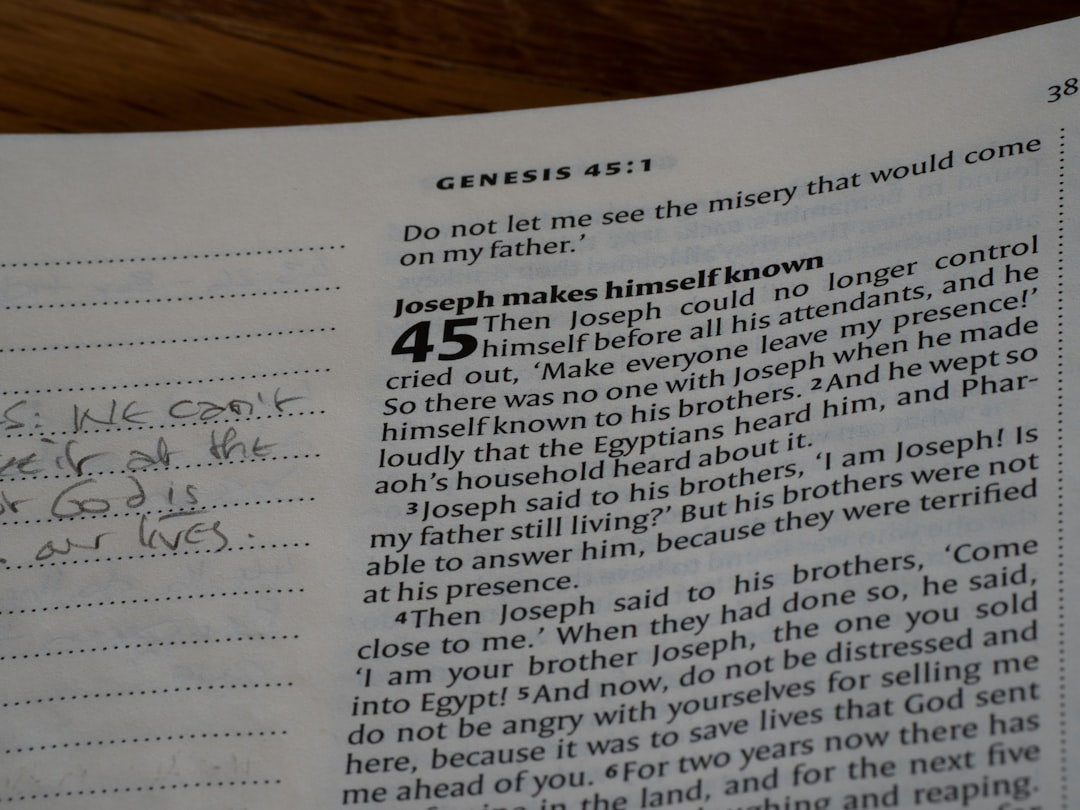 38
GENESIS 45:1
Do not let me see the misery that would come
on my father.’
Joseph makes himself known
45 Then Joseph could no longer control
himself before all his attendants, and he
cried out, ‘Make everyone leave my presence!’
So there was no one with Joseph when he made
himself known to his brothers. 2And he wept so
loudly that the Egyptians heard him, and Phar-
aoh’s household heard about it.
3Joseph said to his brothers, ‘I am Joseph! Is
my father still living?’ But his brothers were not
able to answer him, because they were terrified
at his presence.
4Then Joseph said to his brothers, ‘Come
close to me.’ When they had done so, he said,
‘I am your brother Joseph, the one you sold
into Egypt! 5And now, do not be distressed and
do not be angry with yourselves for selling me
here, because it was to save lives that God sent
me ahead of you. 6For two years now there has
in the land, and for the next five
and reaping.
WE can't
at the
God is
our lives.